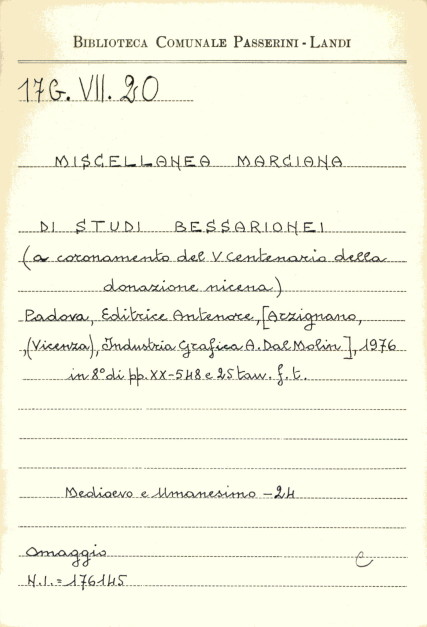 BIBLIOTECA COMUNALE PASSERINI - LANDI
17G. VII. 20
MISCELLANEA MARCIANA
DI STUDI BESSARIONEI
(a coronamento del V Centenario della
donazione nicena)
Padova, Editrice Antenore, [Arzignano,
,(Vicenza), Industria Grafica A. Dal Molin], 1976
in 8° di pp. XX-548 e 25 tav. f. t.
Medioevo e Umanesimo - 24
Omaggio
C
N.I. = 176145